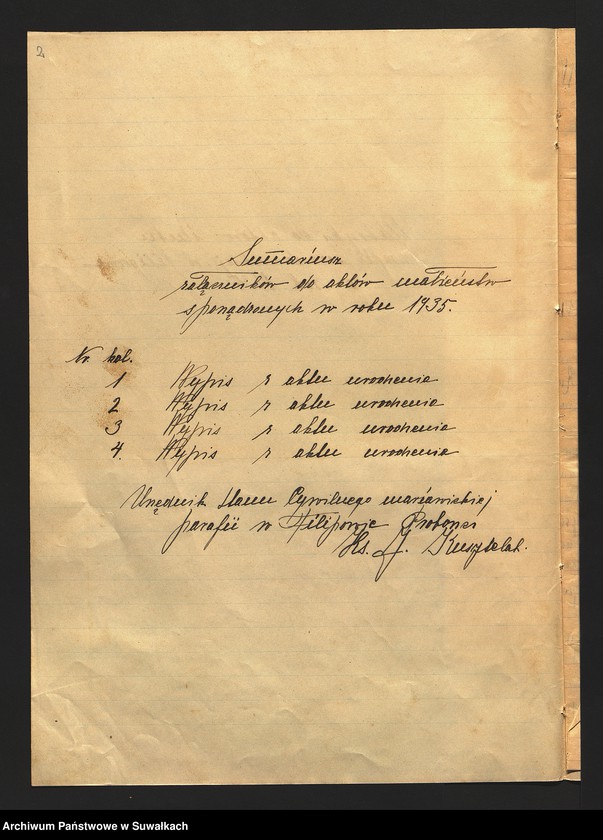 2
Sumarjusz
załączników do aktów małżeństw
sporządzonych w roku 1935.
Nr. kol.
1 Wypis z aktu urodzenia
2 Wypis z aktu urodzenia
3 Wypis z aktu urodzenia
4. Wypis z aktu urodzenia
Urzędnik Stanu Cywilnego marjawickiej
parafii w Filipowie Proboszcz
Ks. J. Kusztelak.
Archiwum Państwowe w Suwałkach